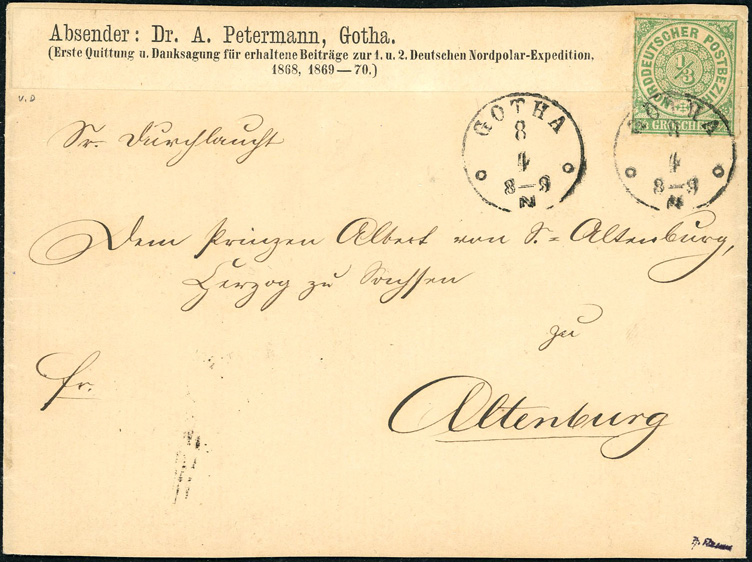 Absender: Dr. A. Petermann, Gotha.
(Erste Quittung u. Danksagung für erhaltene Beiträge zur 1. u. 2. Deutschen Nordpolar-Expedition,
1868, 1869—70.)
NORDDEUTSCHER POSTBEZIRK
1/3
GROSCHEN
V.D
GOTHA
8
4
8—9
N
GOTHA
8
4
8—9
N
Sr. Durchlaucht
Dem Prinzen Albert von S.=Altenburg,
Herzog zu Sachsen
zu
fr.
Altenburg